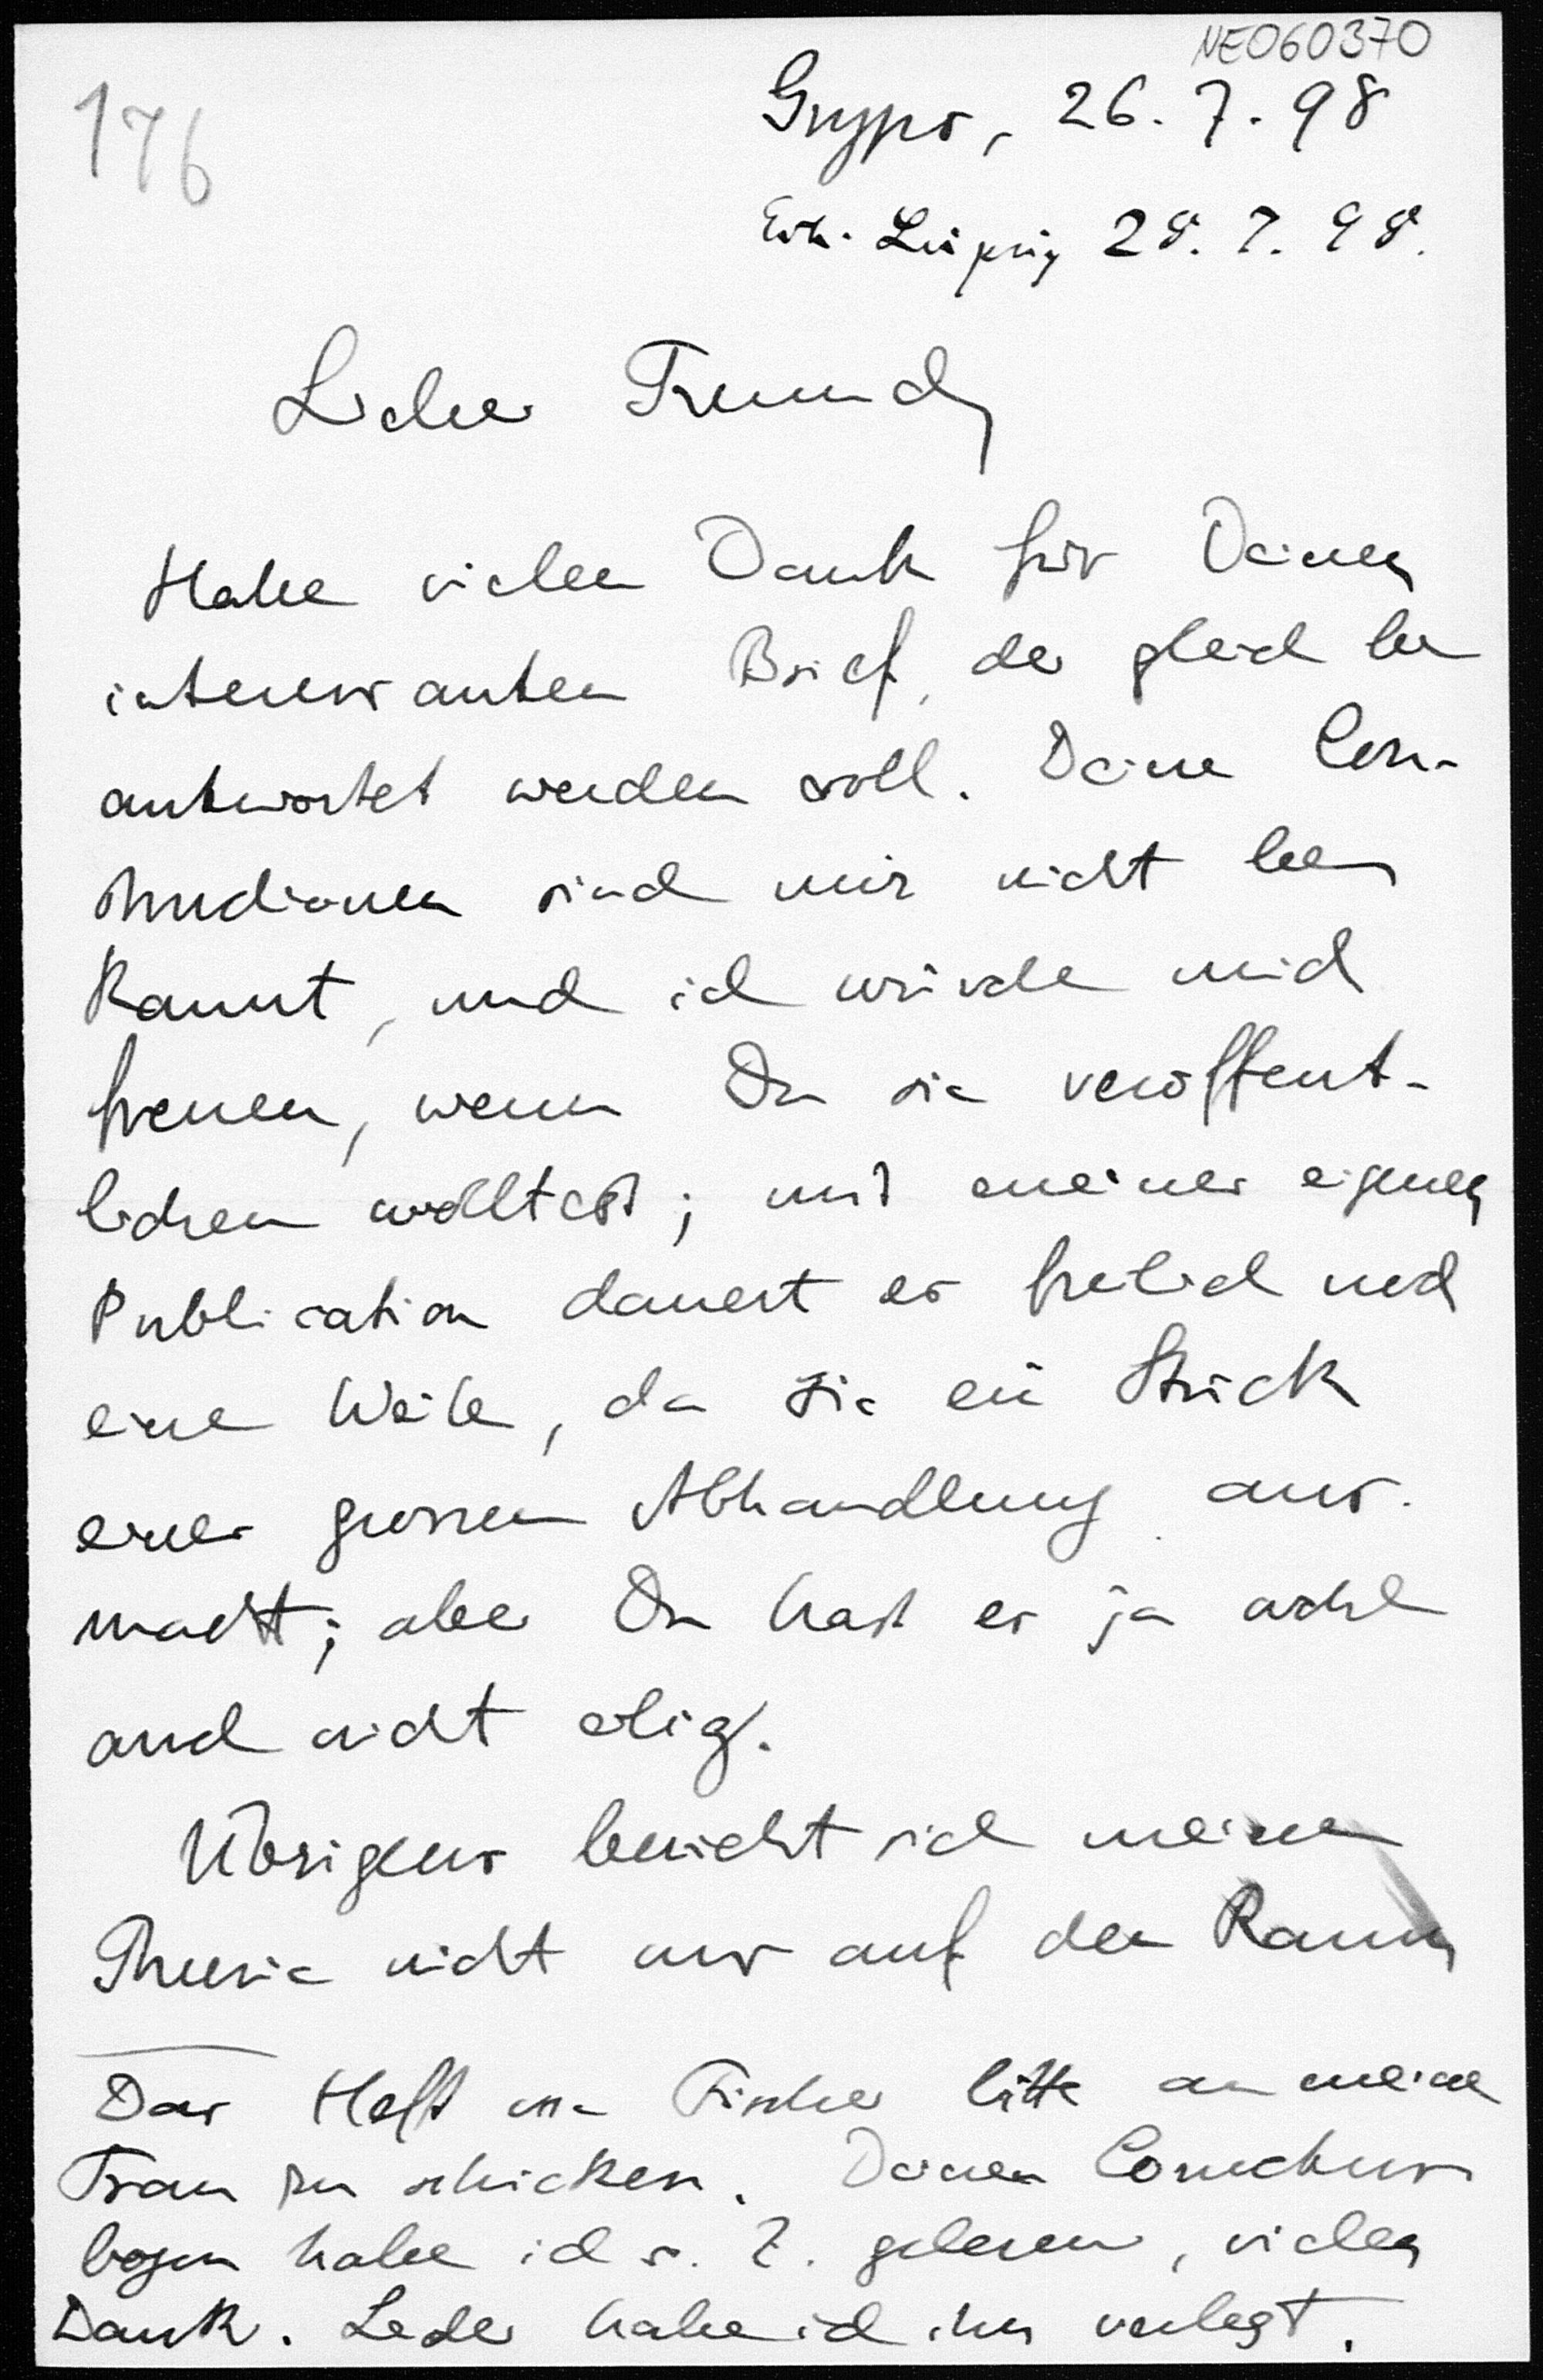 NE060370
176
Gryps, 26. 7. 98
Erh. Leipzig 28. 7. 98.
Lieber Freund
Habe vielen Dank für Deinen
interessanten Brief, der gleich be
antwortet werden soll. Deine Con-
structionen sind mir nicht be
kannt, und ich würde mich
freuen, wenn Du sie veröffent-
lichen wolltest; mit meiner eigenen
Publication dauert es freilich noch
eine Weile, da sie ein Stück
einer grossen Abhandlung aus-
macht; aber Du hast es ja wohl
auch nicht eilig.
Übrigens bezieht sich meine
Theorie nicht nur auf den Raum
Das Heft von Fischer bitte an meine
Frau zu schicken. Deinen Correctur
bogen habe ich s. Z. gelesen, vielen
Dank. Leider habe ich ihn verlegt.